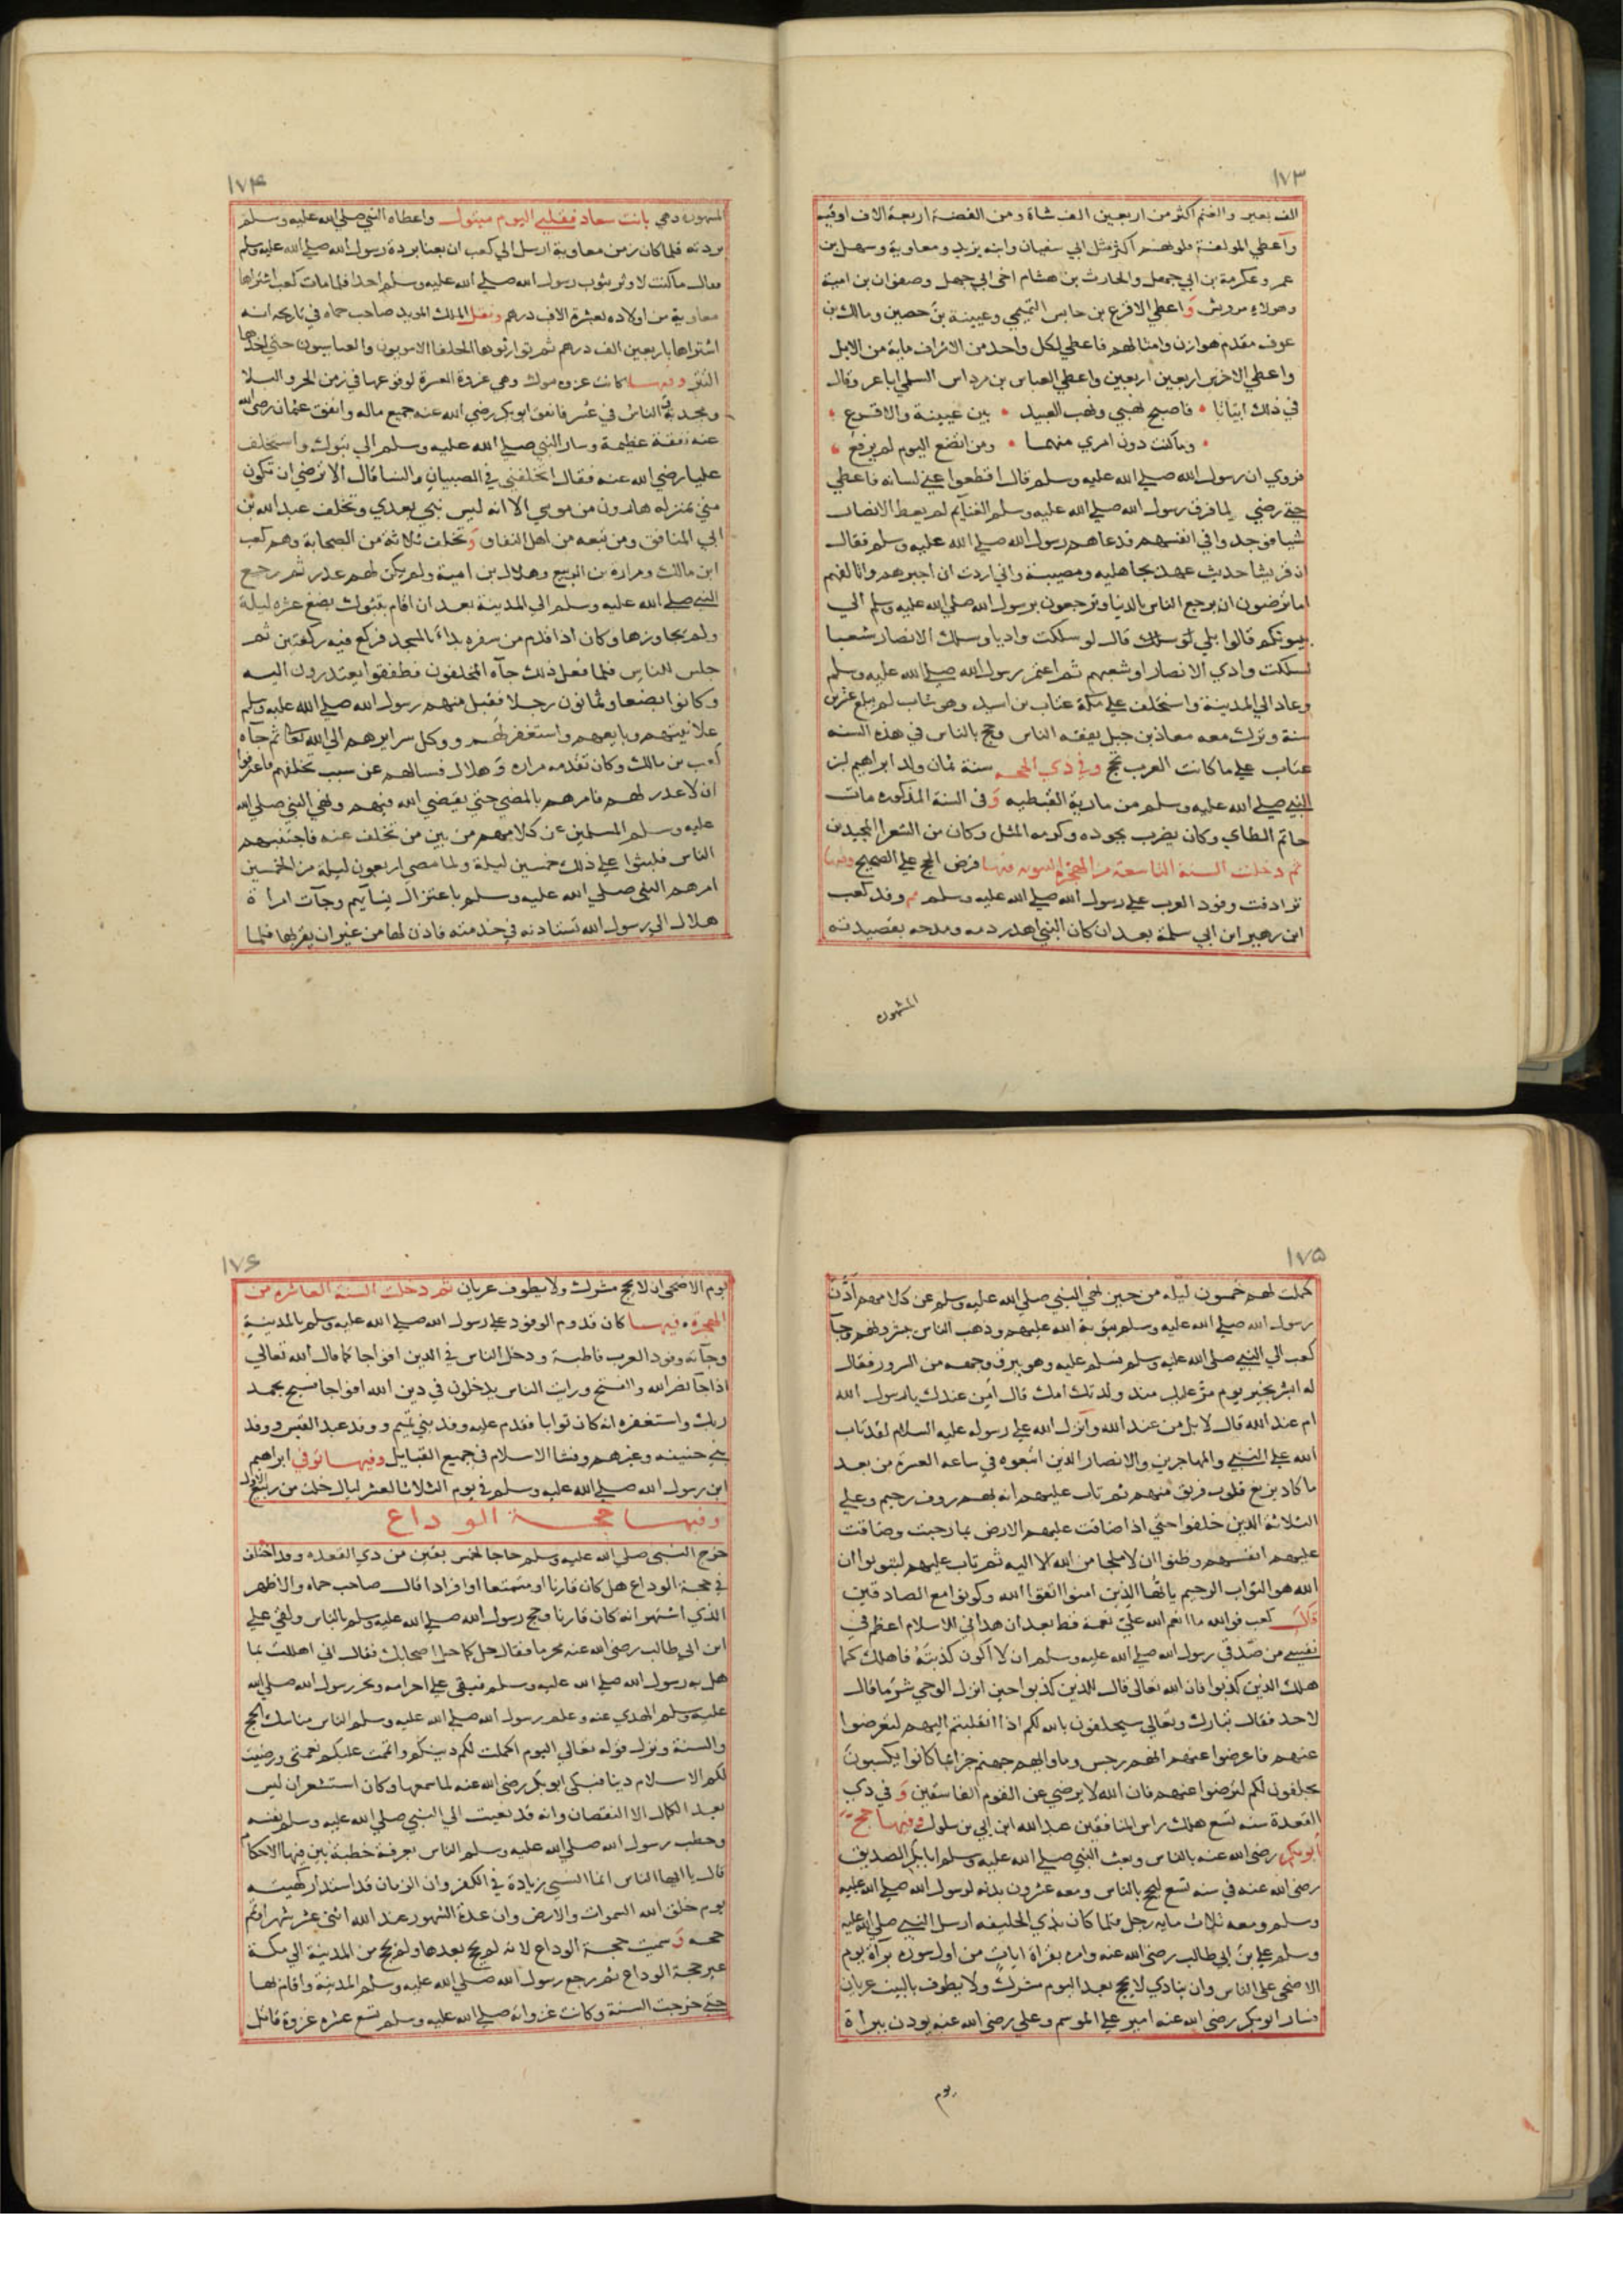 ١٧٣
الف بعير والغنم اكثر من اربعين الف شاة ومن الفضة اربعة الاف اوقيه
واعطي المولفة قلوبهم اكثر مثل ابي سفيان وابنه يزيد ومعاوية وسهل بن
عمر وعكرمة بن ابي جهل والحارث بن هشام اخي ابي جهل وصفوان بن امية
وهولاء من قريش واعطي الاقرع بن حابس التميمي وعيينة بن حصين ومالك بن
عوف مقدم هوازن وامثالهم فاعطي لكل واحد من الاشراف ماية من الابل
واعطي الاخرين اربعين اربعين واعطي العباس بن مرداس السلمي اباعر وقال
في ذلك ابياتا فاصبح نهبي ونهب العبيد بين عيينة والاقرع
وما كنت دون امري منهما ومن اتضع اليوم لم يرفع
فروي ان رسول الله صلي الله عليه وسلم قال اقطعوا عني لسانه فاعطي
حتي رضي لما فرق رسول الله صلي الله عليه وسلم الغنايم لم يعط الانصار
شيا فوجدوا في انفسهم فدعاهم رسول الله صلي الله عليه وسلم فقال
ان قريشا حديث عهد بجاهليه ومصيبة واني اردت ان اجبرهم واتالفهم
اما ترضون ان يرجع الناس بالدنيا وترجعون برسول الله صلي الله عليه وسلم الي
بيوتكم قالوا بلي قال لو سلكت واديا وسلك الانصار شعبا
لسلكت وادي الانصار او شعبهم ثم اعتمر رسول الله صلي الله عليه وسلم
وعاد الي المدينة واستخلف علي مكة عتاب بن اسيد وهو شاب لم يبلغ عشرين
سنة وترك معه معاذ بن جبل يفقه الناس وحج بالناس في هذه السنه
عتاب علي ما كانت العرب تحج وفي ذي الحجه سنة ثمان ولد ابراهيم ابن
النبي صلي الله عليه وسلم من مارية القبطيه وفي السنة المذكوره مات
حاتم الطاي وكان يضرب بجوده وكرمه المثل وكان من الشعرا المجيدين
ثم دخلت السنة التاسعة من الهجرة النبويه فيها فرض الحج علي الصحيح وفيها
ترادفت وفود العرب علي رسول الله صلي الله عليه وسلم وفد كعب
ابن زهير ابن ابي سلمة بعد ان كان النبي اهدر دمه ومدحه بقصيدته
المشهوره
١٧۴
المشهوره وهي بانت سعاد فقلبي اليوم مبتول واعطاه النبي صلي الله عليه وسلم
بردته فلما كان زمن معاوية ارسل الي كعب ان بعنا بردة رسول الله صلي الله عليه وسلم
فقال ما كنت لاوثر بثوب رسول الله صلي الله عليه وسلم احدا فلما مات كعب اشتراها
معاوية من اولاده بعشرة الاف درهم ونقل الملك المويد صاحب حماه في تاريخه انه
اشتراها باربعين الف درهم ثم توارثوها الخلفا الامويون والعباسيون حتي اخذها
التتر وفيها كانت غزوه تبوك وهي غزوة العسرة لوقوعها في زمن الحر والبلاد
مجدبة والناس في عسر فانفق ابوبكر رضي الله عنه جميع ماله وانفق عثمان رضي الله
عنه نفقة عظيمة وسار النبي صلي الله عليه وسلم الي تبوك واستخلف
عليا رضي الله عنه فقال اتخلفني في الصبيان والنسا قال الا ترضي ان تكون
مني بمنزله هارون من موسي الا انه ليس نبي بعدي وتخلف عبد الله بن
ابي المنافق ومن تبعه من اهل النفاق وتخلف ثلاثة من الصحابة وهم كعب
ابن مالك ومرارة بن الربيع وهلال بن امية ولم يكن لهم عذر ثم رجع
النبي صلي الله عليه وسلم الي المدينة بعد ان اقام بتبوك بضع عشره ليلة
ولم يجاوزها وكان اذا قدم من سفره بدا بالمسجد فركع فيه ركعتين ثم
جلس للناس فلما فعل ذلك جاه المخلفون فطفقوا يعتذرون اليه
وكانوا بضعا وثمانون رجلا فقبل منهم رسول الله صلي الله عليه وسلم
علانيتهم وبايعهم واستغفر لهم ووكل سرايرهم الي الله تعالي ثم جاه
كعب بن مالك وكان تقدمه مراره وهلال فسالهم عن سبب تخلفهم فاعترفوا
ان لا عذر لهم فامرهم بالمضي حتي يقضي الله فيهم ونهي النبي صلي الله
عليه وسلم المسلمين عن كلامهم من بين من تخلف عنه فاجتنبهم
الناس فلبثوا علي ذلك خمسين ليلة ولما مضي اربعون ليلة من الخمسين
امرهم النبي صلي الله عليه وسلم باعتزال نسايهم وجات امراة
هلال الي رسول الله تستاذنه في خدمته فاذن لها من غير ان يقربها فلما
١٧۵
كملت لهم خمسون ليله من حين نهي النبي صلي الله عليه وسلم عن كلامهم اذن
رسول الله صلي الله عليه وسلم بتوبة الله عليهم وذهب الناس يبشرونهم وجا
كعب الي النبي صلي الله عليه وسلم فسلم عليه وهو يبرق وجهه من السرور فقال
له ابشر بخير يوم مر عليك منذ ولدتك امك قال امن عندك يا رسول الله
ام عند الله قال لا بل من عند الله وانزل الله علي رسوله عليه السلام لقد تاب
الله علي النبي والمهاجرين والانصار الذين اتبعوه في ساعه العسرة من بعد
ما كاد يزيغ قلوب فريق منهم ثم تاب عليهم انه بهم روف رحيم وعلي
الثلاثة الذين خلفوا حتي اذا ضاقت عليهم الارض بما رحبت وضاقت
عليهم انفسهم وظنوا ان لا ملجا من الله الا اليه ثم تاب عليهم ليتوبوا ان
الله هو التواب الرحيم يا ايها الذين امنوا اتقوا الله وكونوا مع الصادقين
قال كعب فوالله ما انعم الله علي نعمة قط بعد ان هداني للاسلام اعظم في
نفسي من صدقي رسول الله صلي الله عليه وسلم ان لا اكون كذبته فاهلك كما
هلك الذين كذبوا فان الله تعالي قال للذين كذبوا حين انزل الوحي شر ما قال
لاحد فقال تبارك وتعالي سيحلفون بالله لكم اذا انقلبتم اليهم لتعرضوا
عنهم فاعرضوا عنهم انهم رجس وماواهم جهنم جزاء بما كانوا يكسبون
يحلفون لكم لترضوا عنهم فان الله لا يرضي عن القوم الفاسقين وفي ذي
القعدة سنه تسع هلك راس المنافقين عبد الله ابن ابي بن سلول وفيها حج
ابوبكر رضي الله عنه بالناس وبعث النبي صلي الله عليه وسلم ابابكر الصديق
رضي الله عنه في سنه تسع ليحج بالناس ومعه عشرون بدنه لرسول الله صلي الله عليه
وسلم ومعه ثلاث مايه رجل فلما كان بذي الحليفه ارسل النبي صلي الله عليه
وسلم علي بن ابي طالب رضي الله عنه وامره بقراة ايات من اول سوره براة يوم
الاضحي علي الناس وان ينادي لا يحج بعد اليوم مشرك ولا يطوف بالبيت عريان
فسار ابوبكر رضي الله عنه امير علي الموسم وعلي رضي الله عنه يوذن ببراة
يوم
١٧۶
يوم الاضحي ان لا يحج مشرك ولا يطوف عريان ثم دخلت السنة العاشره من
الهجرة فيها كان قدوم الوفود علي رسول الله صلي الله عليه وسلم بالمدينة
وجاته وفود العرب قاطبة ودخل الناس في الدين افواجا كما قال الله تعالي
اذا جا نصر الله والفتح ورايت الناس يدخلون في دين الله افواجا فسبح بحمد
ربك واستغفره انه كان توابا فقدم عليه وفد بني تميم ووفد عبد القيس ووفد
بني حنيفه وغيرهم وفشا الاسلام في جميع القبايل وفيها توفي ابراهيم
ابن رسول الله صلي الله عليه وسلم في يوم الثلاثا لعشر ليال خلت من ربيع الاول
وفيها حجة الوداع
خرج النبي صلي الله عليه وسلم حاجا لخمس بقين من ذي القعده وقد اختلف
في حجة الوداع هل كان قارنا او متمتعا او افرادا قال صاحب حماه والاظهر
الذي اشتهر انه كان قارنا وحج رسول الله صلي الله عليه وسلم بالناس ولقي علي
ابن ابي طالب رضي الله عنه محرما فقال حل كما حل اصحابك فقال اني اهللت بما
هل به رسول الله صلي الله عليه وسلم فبقي علي احرامه ونحر رسول الله صلي الله
عليه وسلم الهدي عنه وعلم رسول الله صلي الله عليه وسلم الناس مناسك الحج
والسنة ونزل قوله تعالي اليوم اكملت لكم دينكم واتممت عليكم نعمتي ورضيت
لكم الاسلام دينا فبكي ابوبكر رضي الله عنه لما سمعها وكان استشعر ان ليس
بعد الكمال الا النقصان وانه قد نعيت الي النبي صلي الله عليه وسلم نفسه
وخطب رسول الله صلي الله عليه وسلم الناس بعرفة خطبة بين فيها الاحكام
قال يا ايها الناس انما النسي زيادة في الكفر وان الزمان قد استدار كهيئته
يوم خلق الله السموات والارض وان عدة الشهور عند الله اثني عشر شهرا وتم
حجه وسميت حجة الوداع لانه لم يحج بعدها ولم يحج من المدينة الي مكة
غير حجة الوداع ثم رجع رسول الله صلي الله عليه وسلم المدينة واقام بها
حتي خرجت السنة وكانت غزواته صلي الله عليه وسلم تسع عشره غزوة قاتل